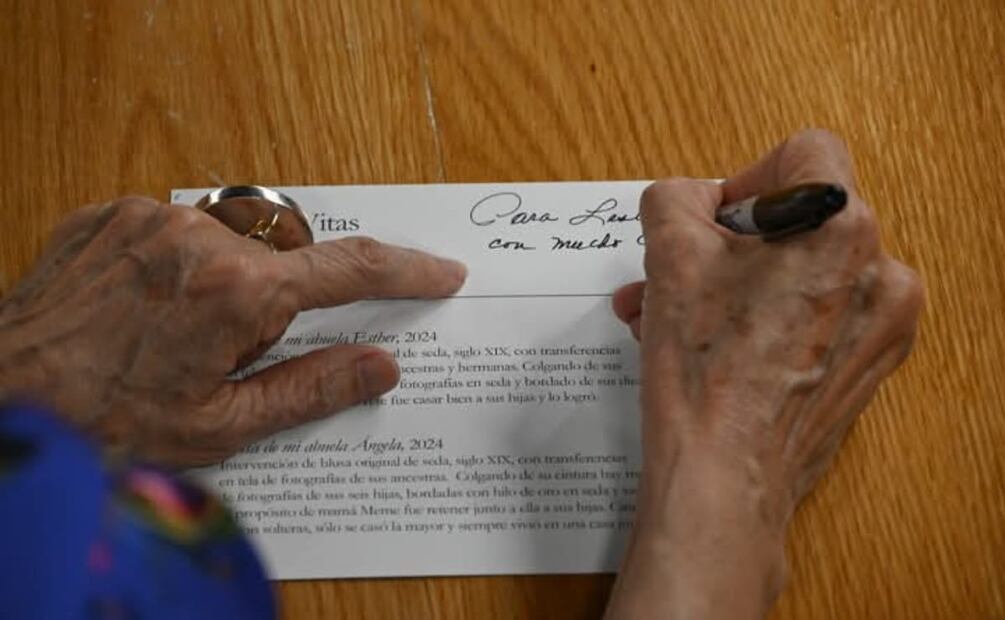 Vitas
Para
con mucho
mi abuela Esther, 2024
de seda, siglo XIX, con transferencias
ancestras y hermanas. Colgando de sus
fotografías en seda y bordado de sus
fue casar bien a sus hijas y lo logró.
de mi abuela Ángela, 2024
Intervención de blusa original de seda, siglo XIX, con transferencias
en tela de fotografías de sus ancestras. Colgando de su cintura hay
de fotografías de sus seis hijas, bordadas con hilo de oro en seda y
propósito de mamá Meme fue retener junto a ella a sus hijas.
solteras, sólo se casó la mayor y siempre vivió en una casa